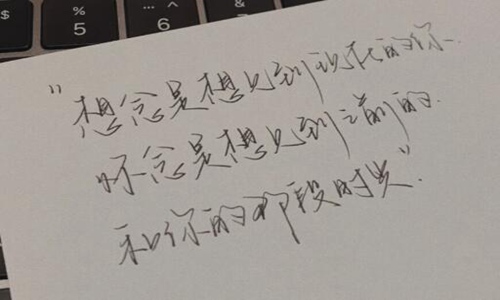 %
5
… ^
6
“想念是想见到现在的你.
怀念是想见到之前的.
和你的那段时光”.